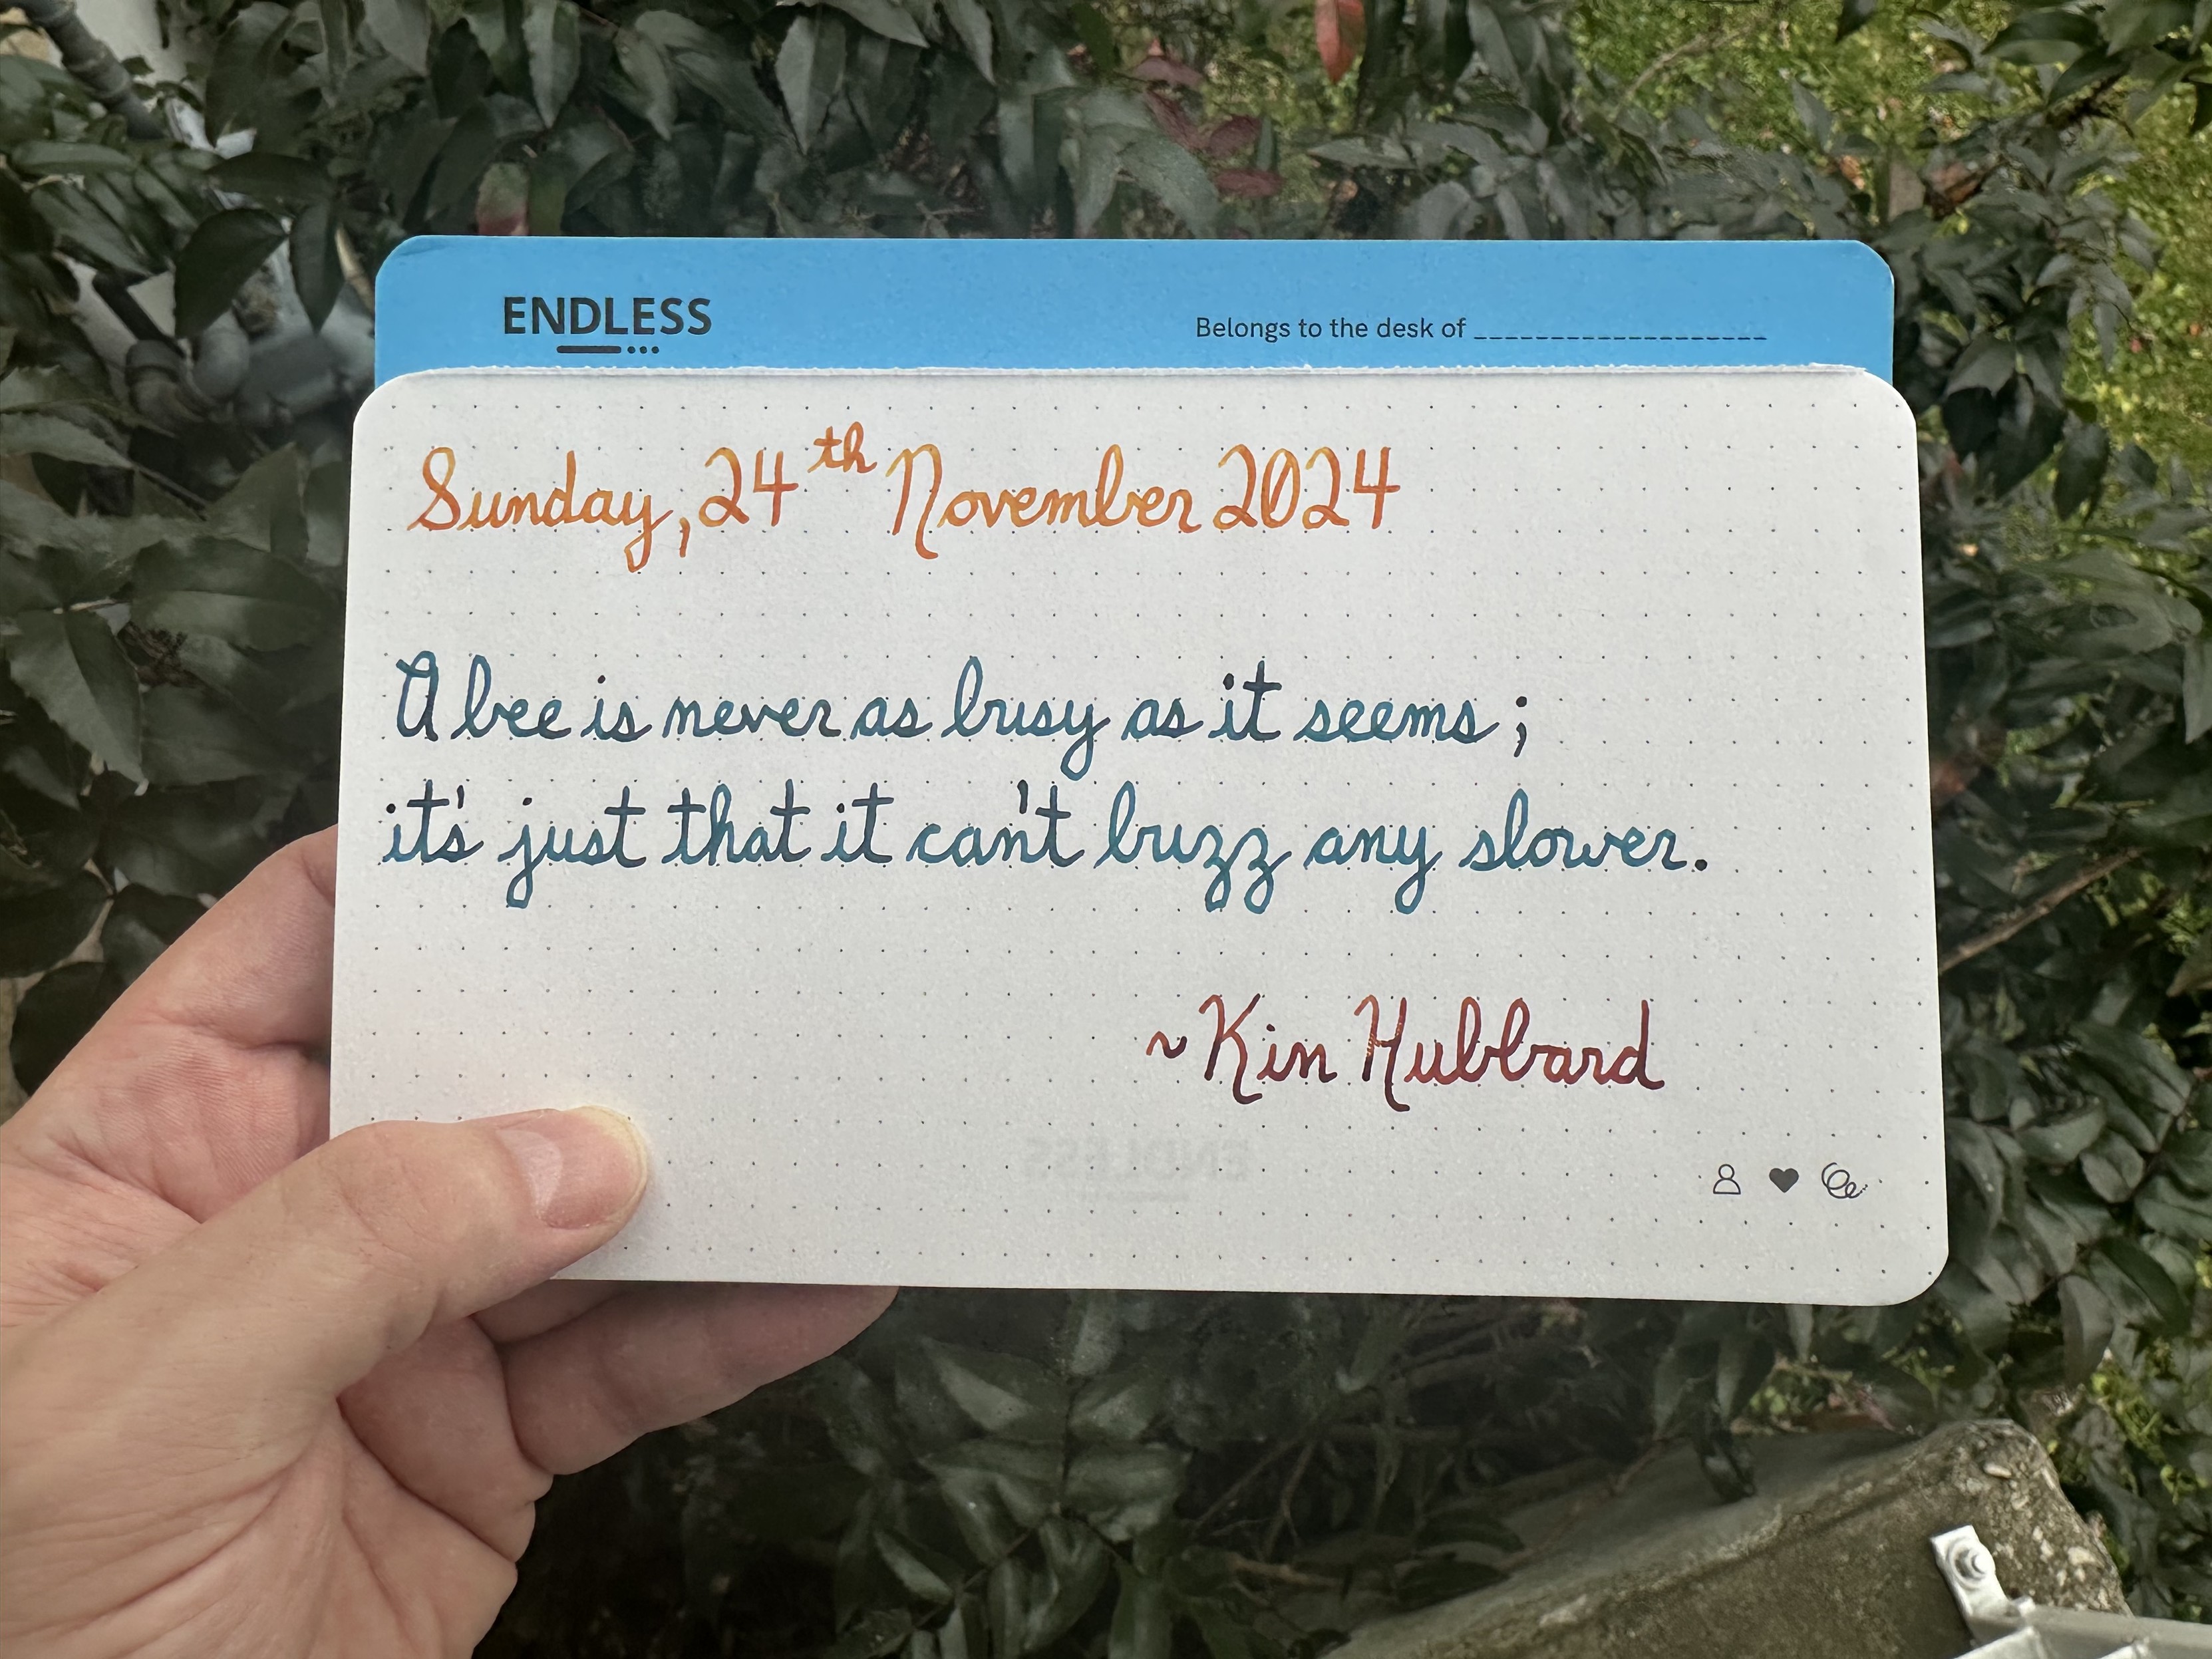 ENDLESS
Belongs to the desk of ____________________
Sunday, 24th November 2024
A bee is never as busy as it seems;
it's just that it can't buzz any slower.
~Kin Hubbard
ENDLESS